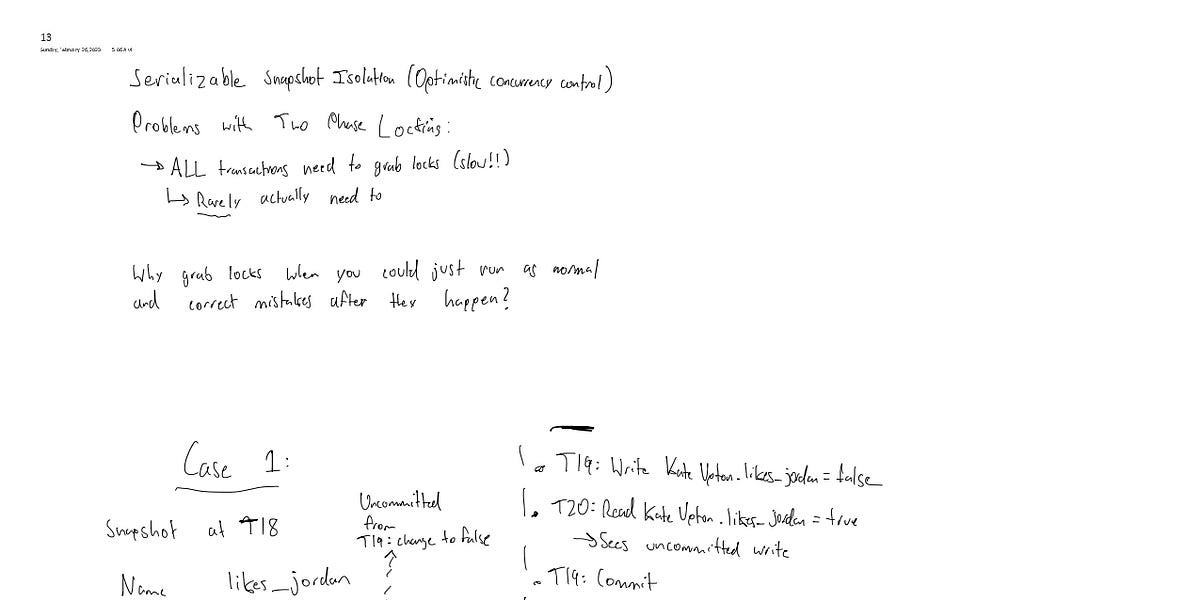 13
Sunday, February 26, 2023
Serializable Snapshot Isolation (Optimistic concurrency control)
Problems with Two Phase Locking:
→ ALL transactions need to grab locks (slow!!)
↳ Rarely actually need to
Why grab locks when you could just run as normal
and correct mistakes after they happen?
Case 1:
Snapshot at T18
Name likes_jordan
Uncommitted
from
T19: change to false
T19: Write Kate Upton.likes_jordan = false
T20: Read Kate Upton.likes_jordan = true
→ Sees uncommitted write
T19: Commit